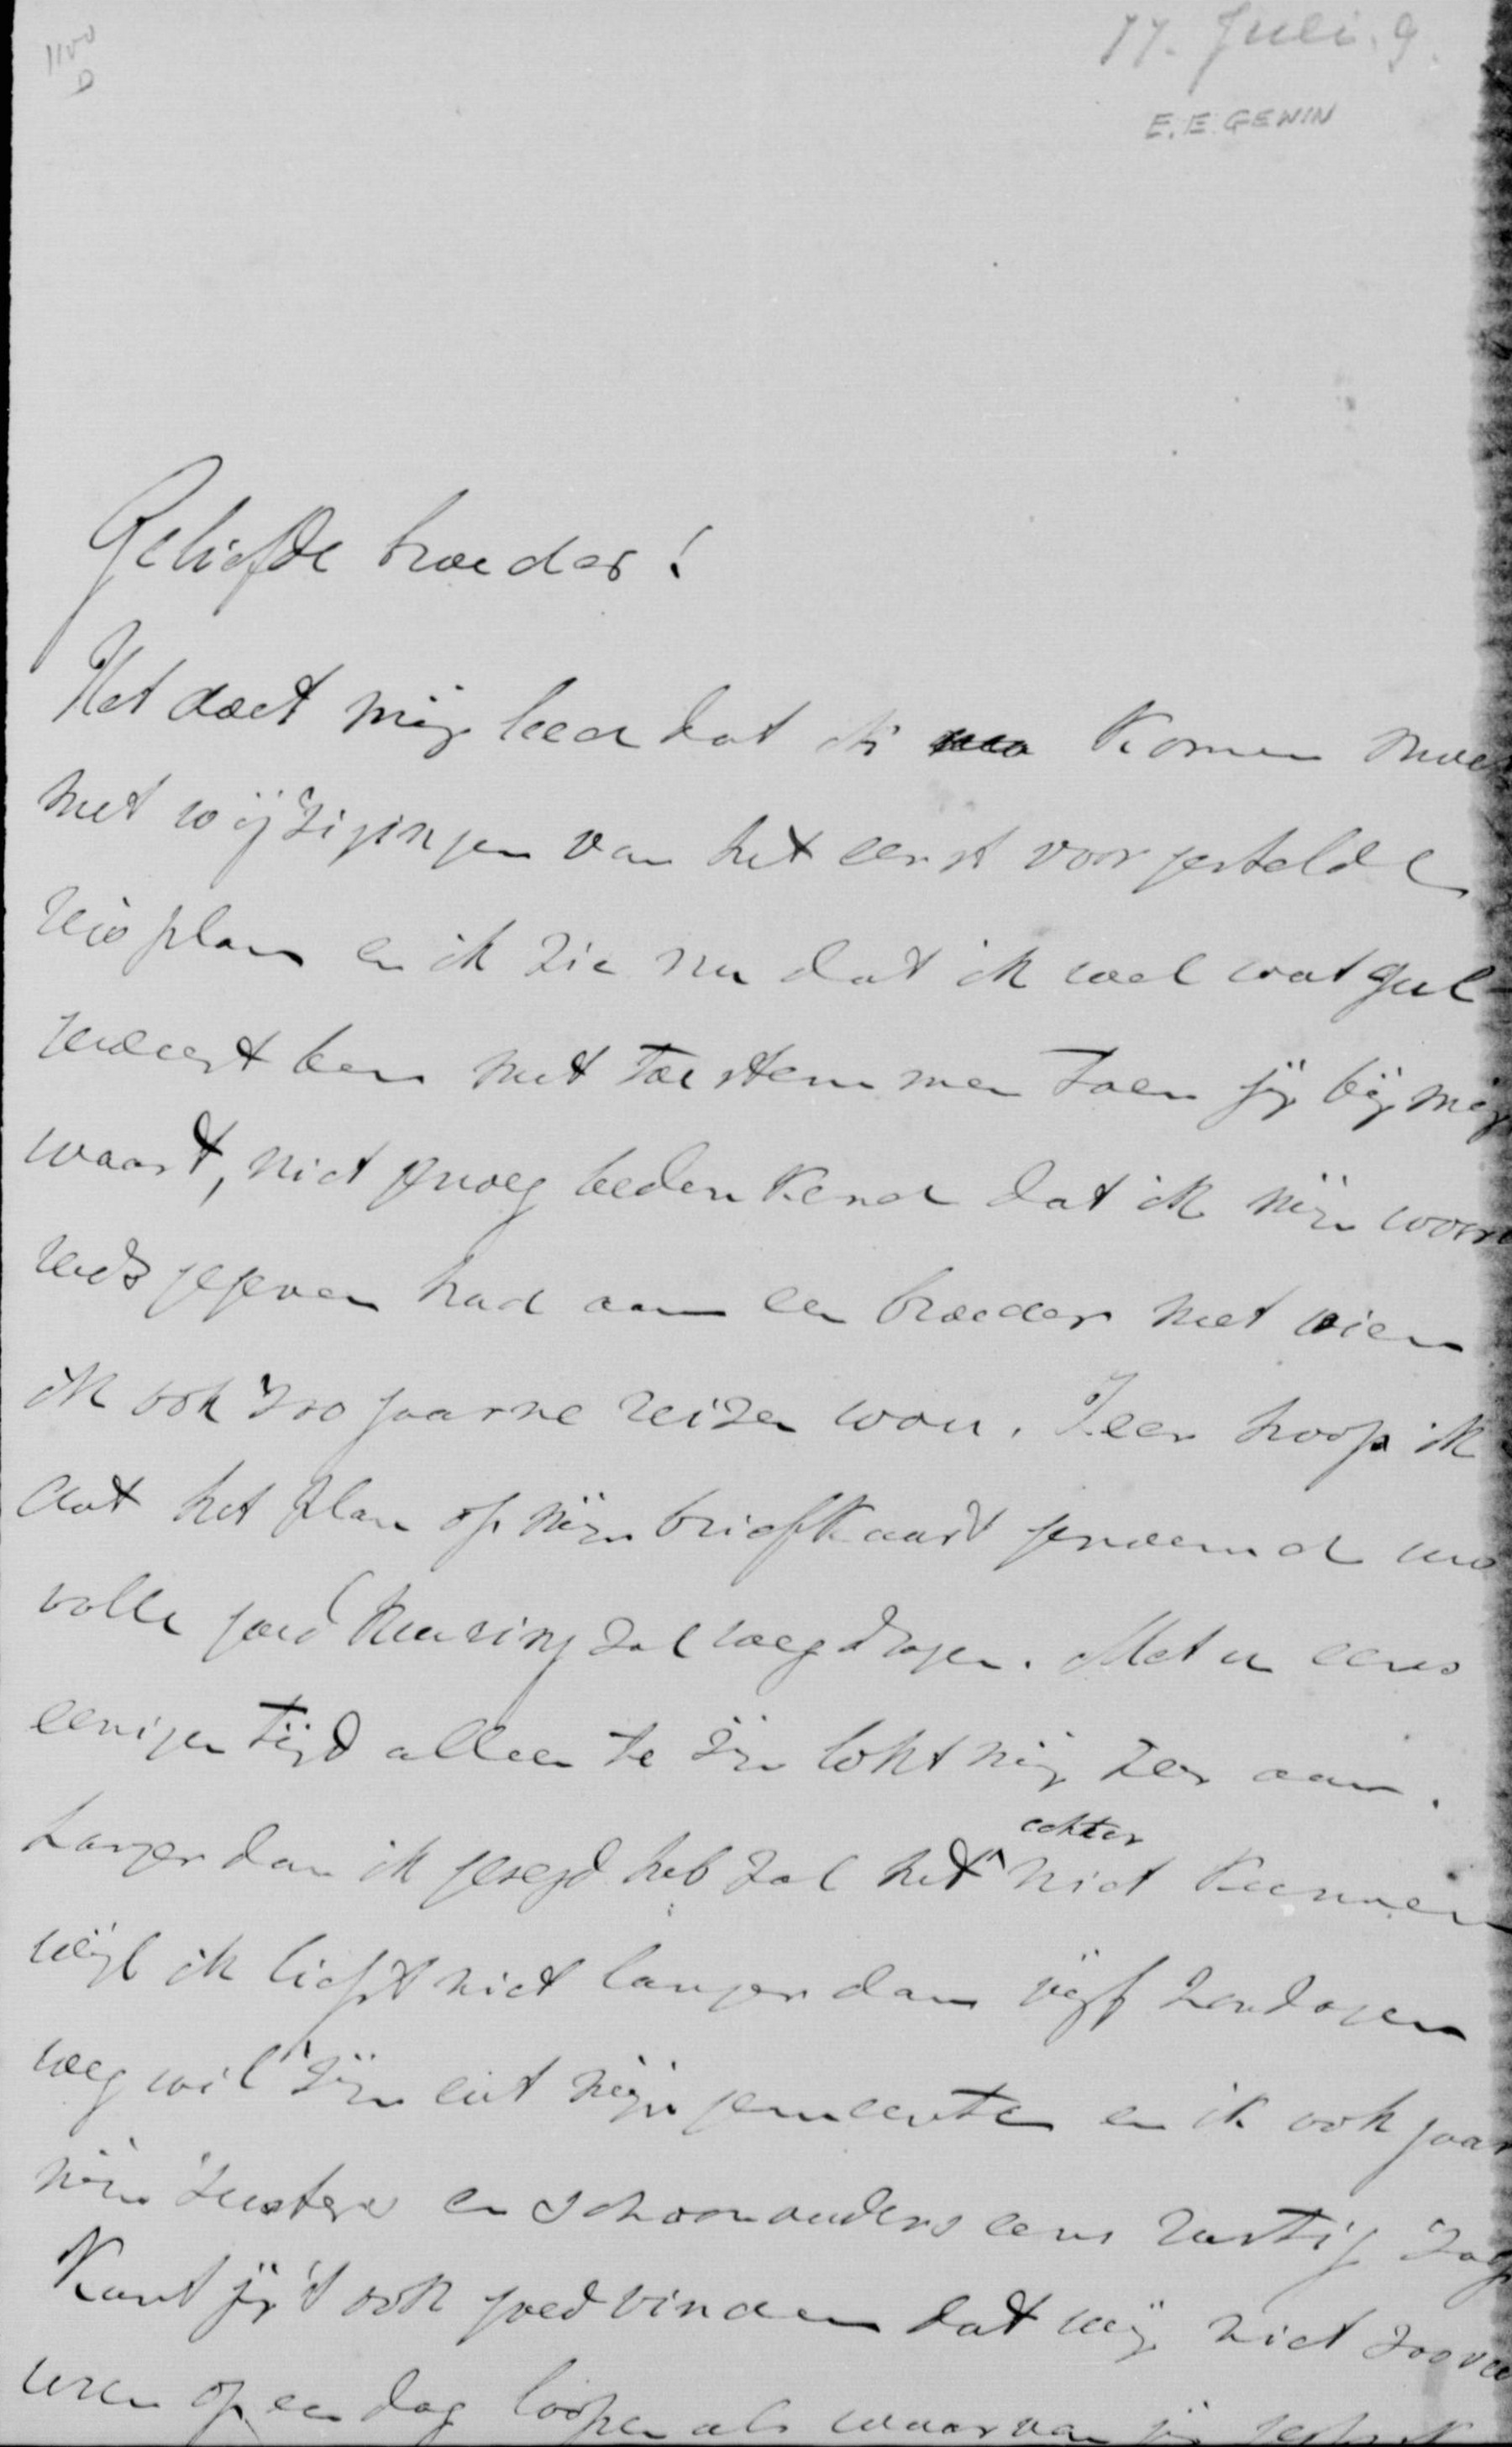 1100
D
17. Juli. 9.
E. E. GEWIN
Geliefde broeder!
Het doet mij leed dat ik komen moet
met wijzigingen van het eerst voorgestelde
reisplan en ik zie nu dat ik wel wat gul
geweest ben met toestemmen toen jij bij mij
waart, niet genoeg bedenkend dat ik mijn woord
reeds gegeven had aan een broeder met wien
ik ook zoo gaarne reizen wou. Zeer hoop ik
dat het plan op mijn briefkaart genoemd uw
volle goedkeuring zal wegdragen. Met u eens
eenigen tijd alleen te zijn lokt mij zeer aan.
Langer dan ik gezegd heb zal het echter niet kunnen
wijl ik liefst niet langer dan vijf zondagen
weg wil zijn uit mijn gemeente en ik ook gaar
mijn zusters en schoonouders eens rustig zag
Kunt jij 't ook goedvinden dat wij niet zoovee
uren op een dag loopen als waarvan jij